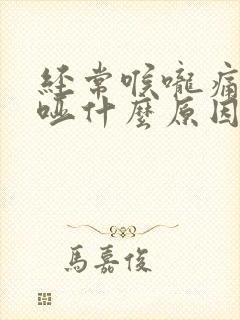 經常喉嚨痛
啞什麼原因
馬嘉俊